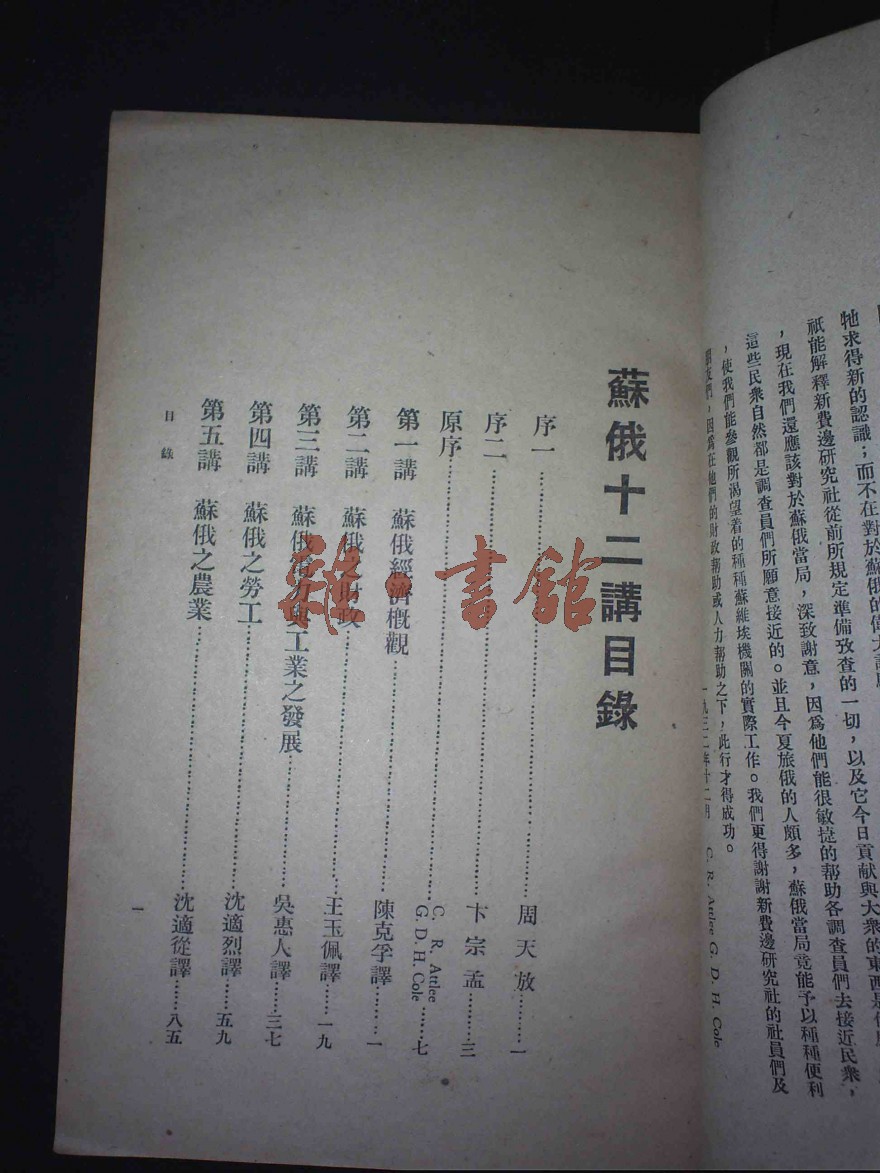 牠求得新的認識；而不在對於蘇俄的偉大
祇能解釋新費邊研究社從前所規定準備攷查的一切，以及它今日貢獻與大衆的東西是什麼
，現在我們還應該對於蘇俄當局，深致謝意，因爲他們能很敏捷的帮助各調查員們去接近民衆，
這些民衆自然都是調查員們所願意接近的。並且今夏旅俄的人頗多，蘇俄當局竟能予以種種便利
，使我們能參觀所渴望着的種種蘇維埃機關的實際工作。我們更得謝謝新費邊研究社的社員們及
朋友們，因爲在他們的財政帮助或人力帮助之下，此行才得成功。
一九三二年十二月 C. R. Attlee G. D. H. Cole
蘇俄十二講目錄
序一……周天放……一
序二……卞宗孟……三
原序……C. R. Attlee G. D. H. Cole……七
第一講 蘇俄經濟槪觀……陳克孚譯……一
第二講 蘇俄之財政……王玉佩譯……一九
第三講 蘇俄電力與工業之發展……吳惠人譯……三七
第四講 蘇俄之勞工……沈適烈譯……五九
第五講 蘇俄之農業……沈適從譯……八五
目錄
一
雜·書館